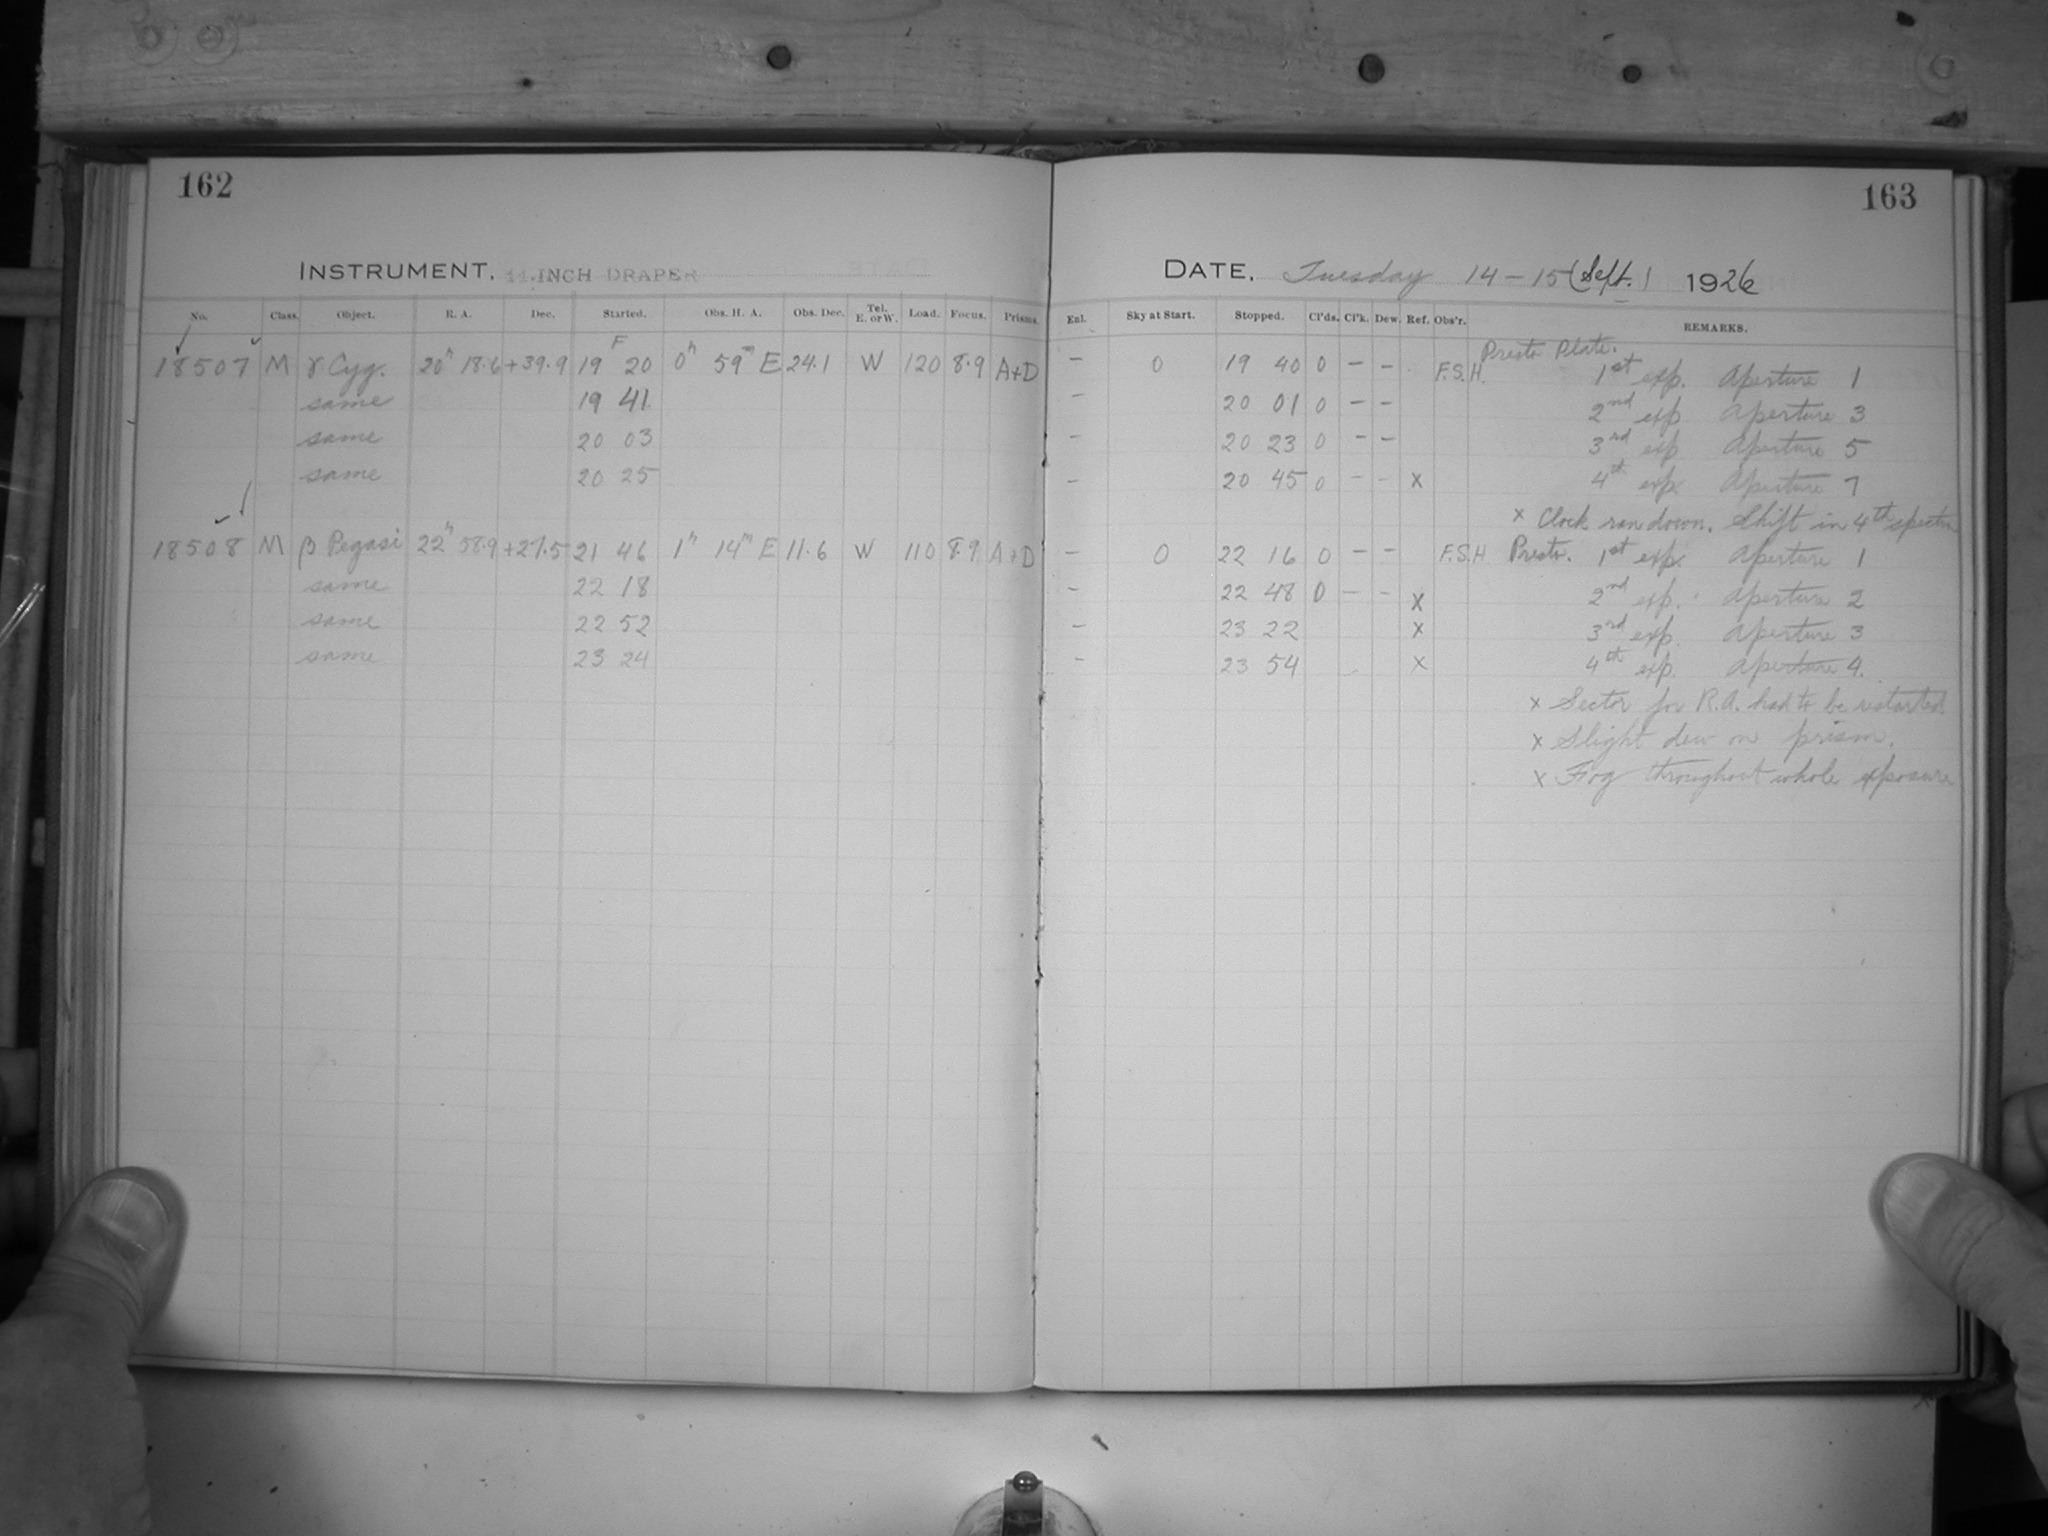 162
INSTRUMENT, 11-INCH DRAPER
No. Class. Object. R. A. Dec. Started. Obs. H. A. Obs. Dec. Tel. E. or W. Load. Focus. Prisms.
F
18507 M γ Cyg. 20h 18.6 +39.9 19 20 0h 59m E 24.1 W 120 8.9 A+D
same 19 41
same 20 03
same 20 25
18508 M β Pegasi 22h 58.9 +27.5 21 46 1h 14m E 11.6 W 110 8.9 A+D
same 22 18
same 22 52
same 23 24
163
DATE, Tuesday 14-15 (Sept.) 1926
Enl. Sky at Start. Stopped. Cl'ds. Cl'k. Dew. Ref. Obs'r. REMARKS.
Presto Plate.
- 0 19 40 0 - - F.S.H. 1st exp. Aperture 1
- 20 01 0 - - 2nd exp Aperture 3
- 20 23 0 - - 3rd exp Aperture 5
- 20 45 0 - - x 4th exp. Aperture 7
x Clock ran down. Shift in 4th spectra
- 0 22 16 0 - - F.S.H Presto. 1st exp. Aperture 1
- 22 48 0 - - x 2nd exp. Aperture 2
- 23 22 x 3rd exp. Aperture 3
- 23 54 x 4th exp. Aperture 4.
x Sector for R.A. had to be restarted
x Slight dew on prism.
x Fog throughout whole exposure